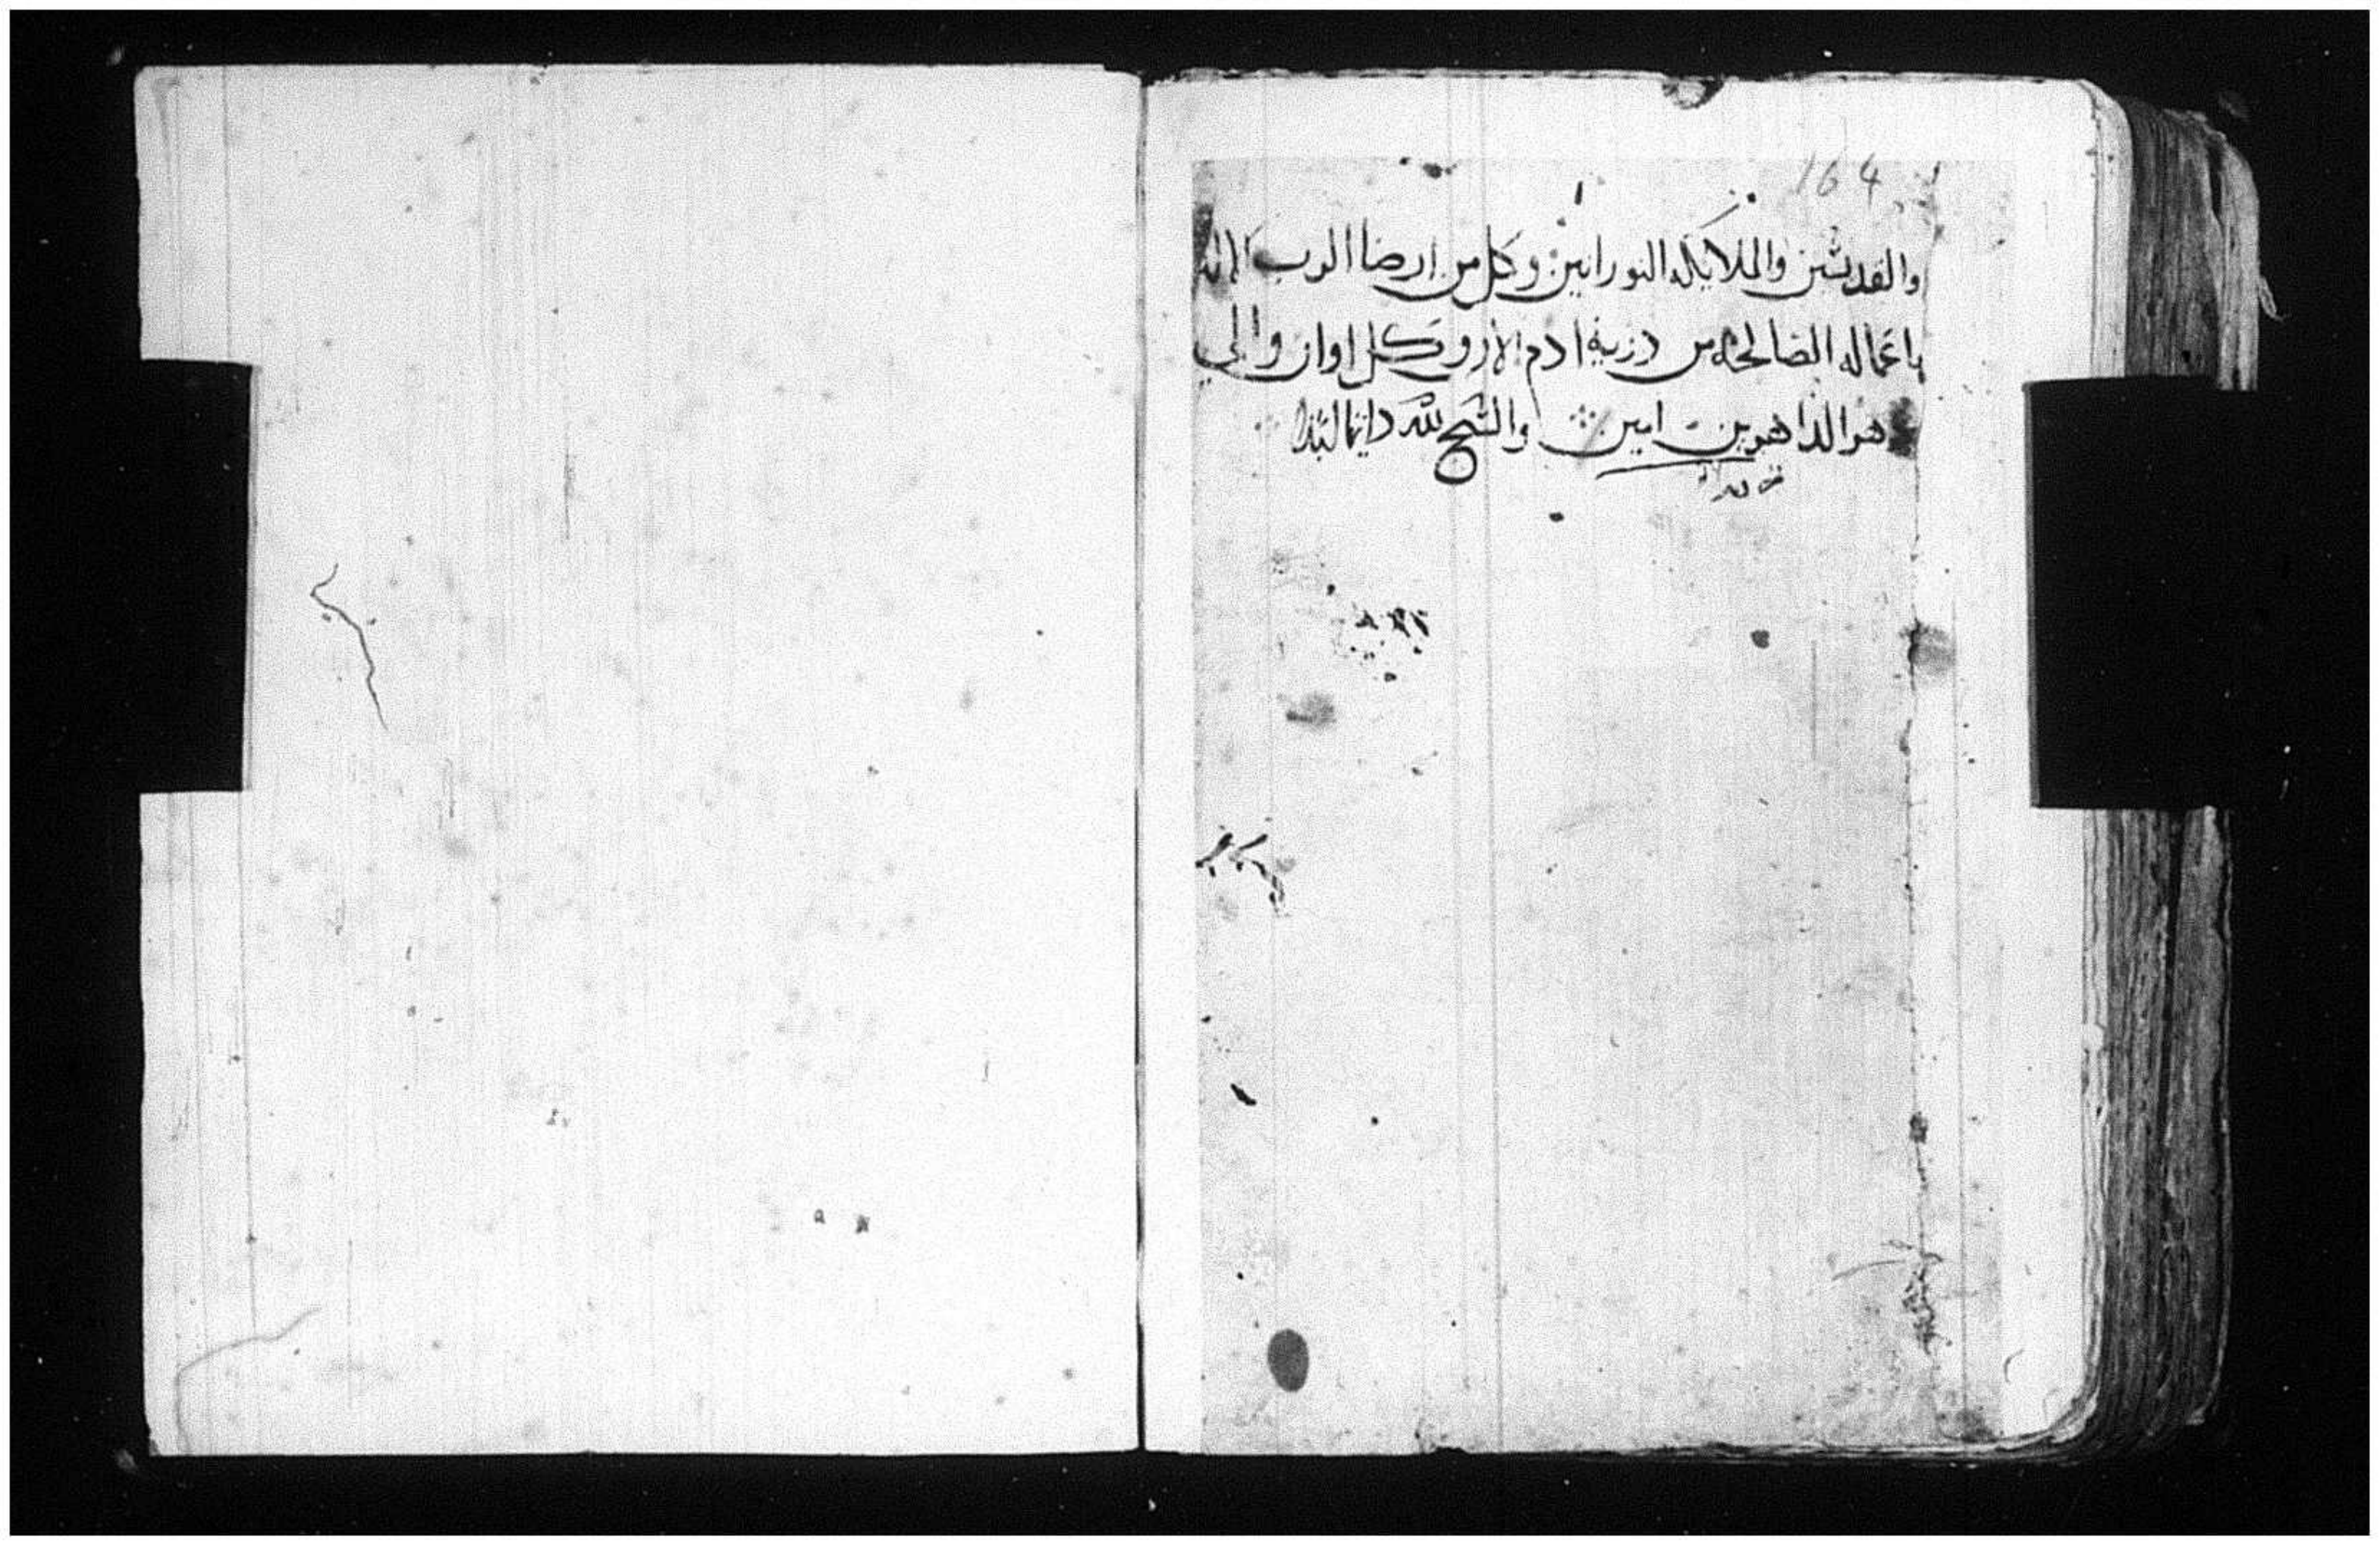 164
والقديسين والملايكه النورانيين وكل من ارضا الرب الاله
باعماله الصالحه من درية ادم الان وكل اوان والي
دهر الداهرين امين والسبح لله دايما ابدا